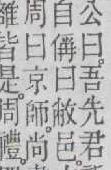 公曰。吾先君
自偁曰敝邑。
周曰京師。尚
皆是。周禮